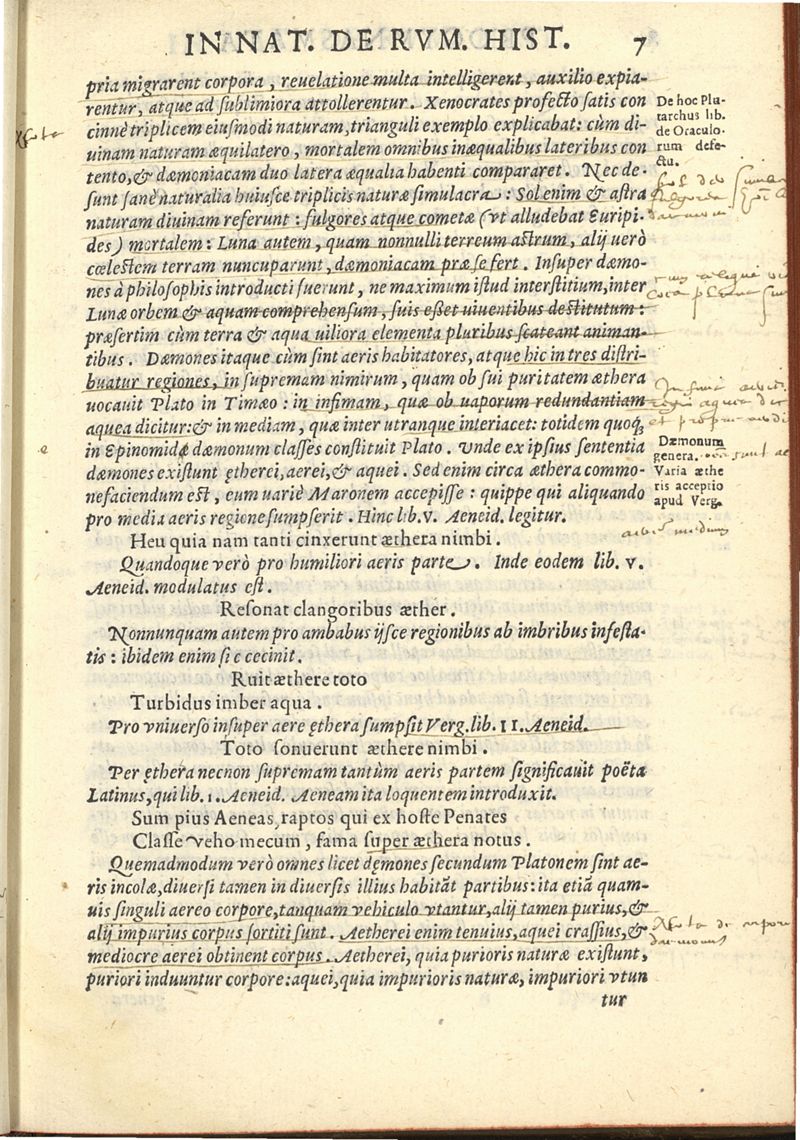 IN NAT. DE RVM. HIST. 7
pria migrarent corpora, reuelatione multa intelligerent, auxilio expia-
rentur, atque ad sublimiora attollerentur. Xenocrates profecto satis con
cinnè triplicem eiusmodi naturam, trianguli exemplo explicabat: cùm di-
uinam naturam æquilatero, mortalem omnibus inæqualibus lateribus con
tento, & dæmoniacam duo latera æqualia habenti compararet. Nec de-
sunt sanè naturalia huiusce triplicis naturæ simulacra: Sol enim & astra
naturam diuinam referunt: fulgores atque cometæ (vt alludebat Euripi-
des) mortalem: Luna autem, quam nonnulli terreum astrum, alij uerò
cœlestem terram nuncuparunt, dæmoniacam præ se fert. Insuper dæmo-
nes à philosophis introducti fuerunt, ne maximum istud interstitium, inter
Lunæ orbem & aquam comprehensum, suis esset uiuentibus destitutum:
præsertim cùm terra & aqua uiliora elementa pluribus scateant animan-
tibus. Dæmones itaque cùm sint aeris habitatores, atque hic in tres distri-
buatur regiones, in supremam nimirum, quam ob sui puritatem æthera
uocauit Plato in Timæo: in infimam, quæ ob uaporum redundantiam
aquea dicitur: & in mediam, quæ inter utranque interiacet: totidem quoq;
in Epinomidæ dæmonum classes constituit Plato. Vnde ex ipsius sententia
dæmones existunt ętherei, aerei, & aquei. Sed enim circa æthera commo-
nefaciendum est, eum uariè Maronem accepisse: quippe qui aliquando
pro media aeris regione sumpserit. Hinc lib. V. Aeneid. legitur.
Heu quia nam tanti cinxerunt æthera nimbi.
Quandoque verò pro humiliori aeris parte. Inde eodem lib. v.
Aeneid. modulatus est.
Resonat clangoribus æther.
Nonnunquam autem pro ambabus ijsce regionibus ab imbribus infesta-
tis: ibidem enim sic cecinit.
Ruit æthere toto
Turbidus imber aqua.
Pro vniuerso insuper aere ęthera sumpsit Verg. lib. II. Aeneid.
Toto sonuerunt æthere nimbi.
Per ęthera necnon supremam tantùm aeris partem significauit poëta
Latinus, qui lib. 1. Aeneid. Aeneam ita loquentem introduxit.
Sum pius Aeneas, raptos qui ex hoste Penates
Classe veho mecum, fama super æthera notus.
Quemadmodum verò omnes licet dęmones secundum Platonem sint ae-
ris incolæ, diuersi tamen in diuersis illius habitāt partibus: ita etiā quam-
uis singuli aereo corpore, tanquam vehiculo vtantur, alij tamen purius, &
alij impurius corpus sortiti sunt. Aetherei enim tenuius, aquei crassius, &
mediocre aerei obtinent corpus. Aetherei, quia purioris naturæ existunt,
puriori induuntur corpore: aquei, quia impurioris naturæ, impuriori vtun
tur
De hoc Plu-
tarchus lib.
de Oraculo-
rum defe-
ctu.
Dæmonum
genera.
Varia æthe
ris acceptio
apud Verg.